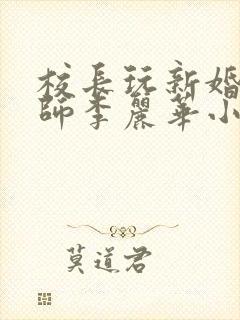 校長玩新婚
師李麗華小
莫道君